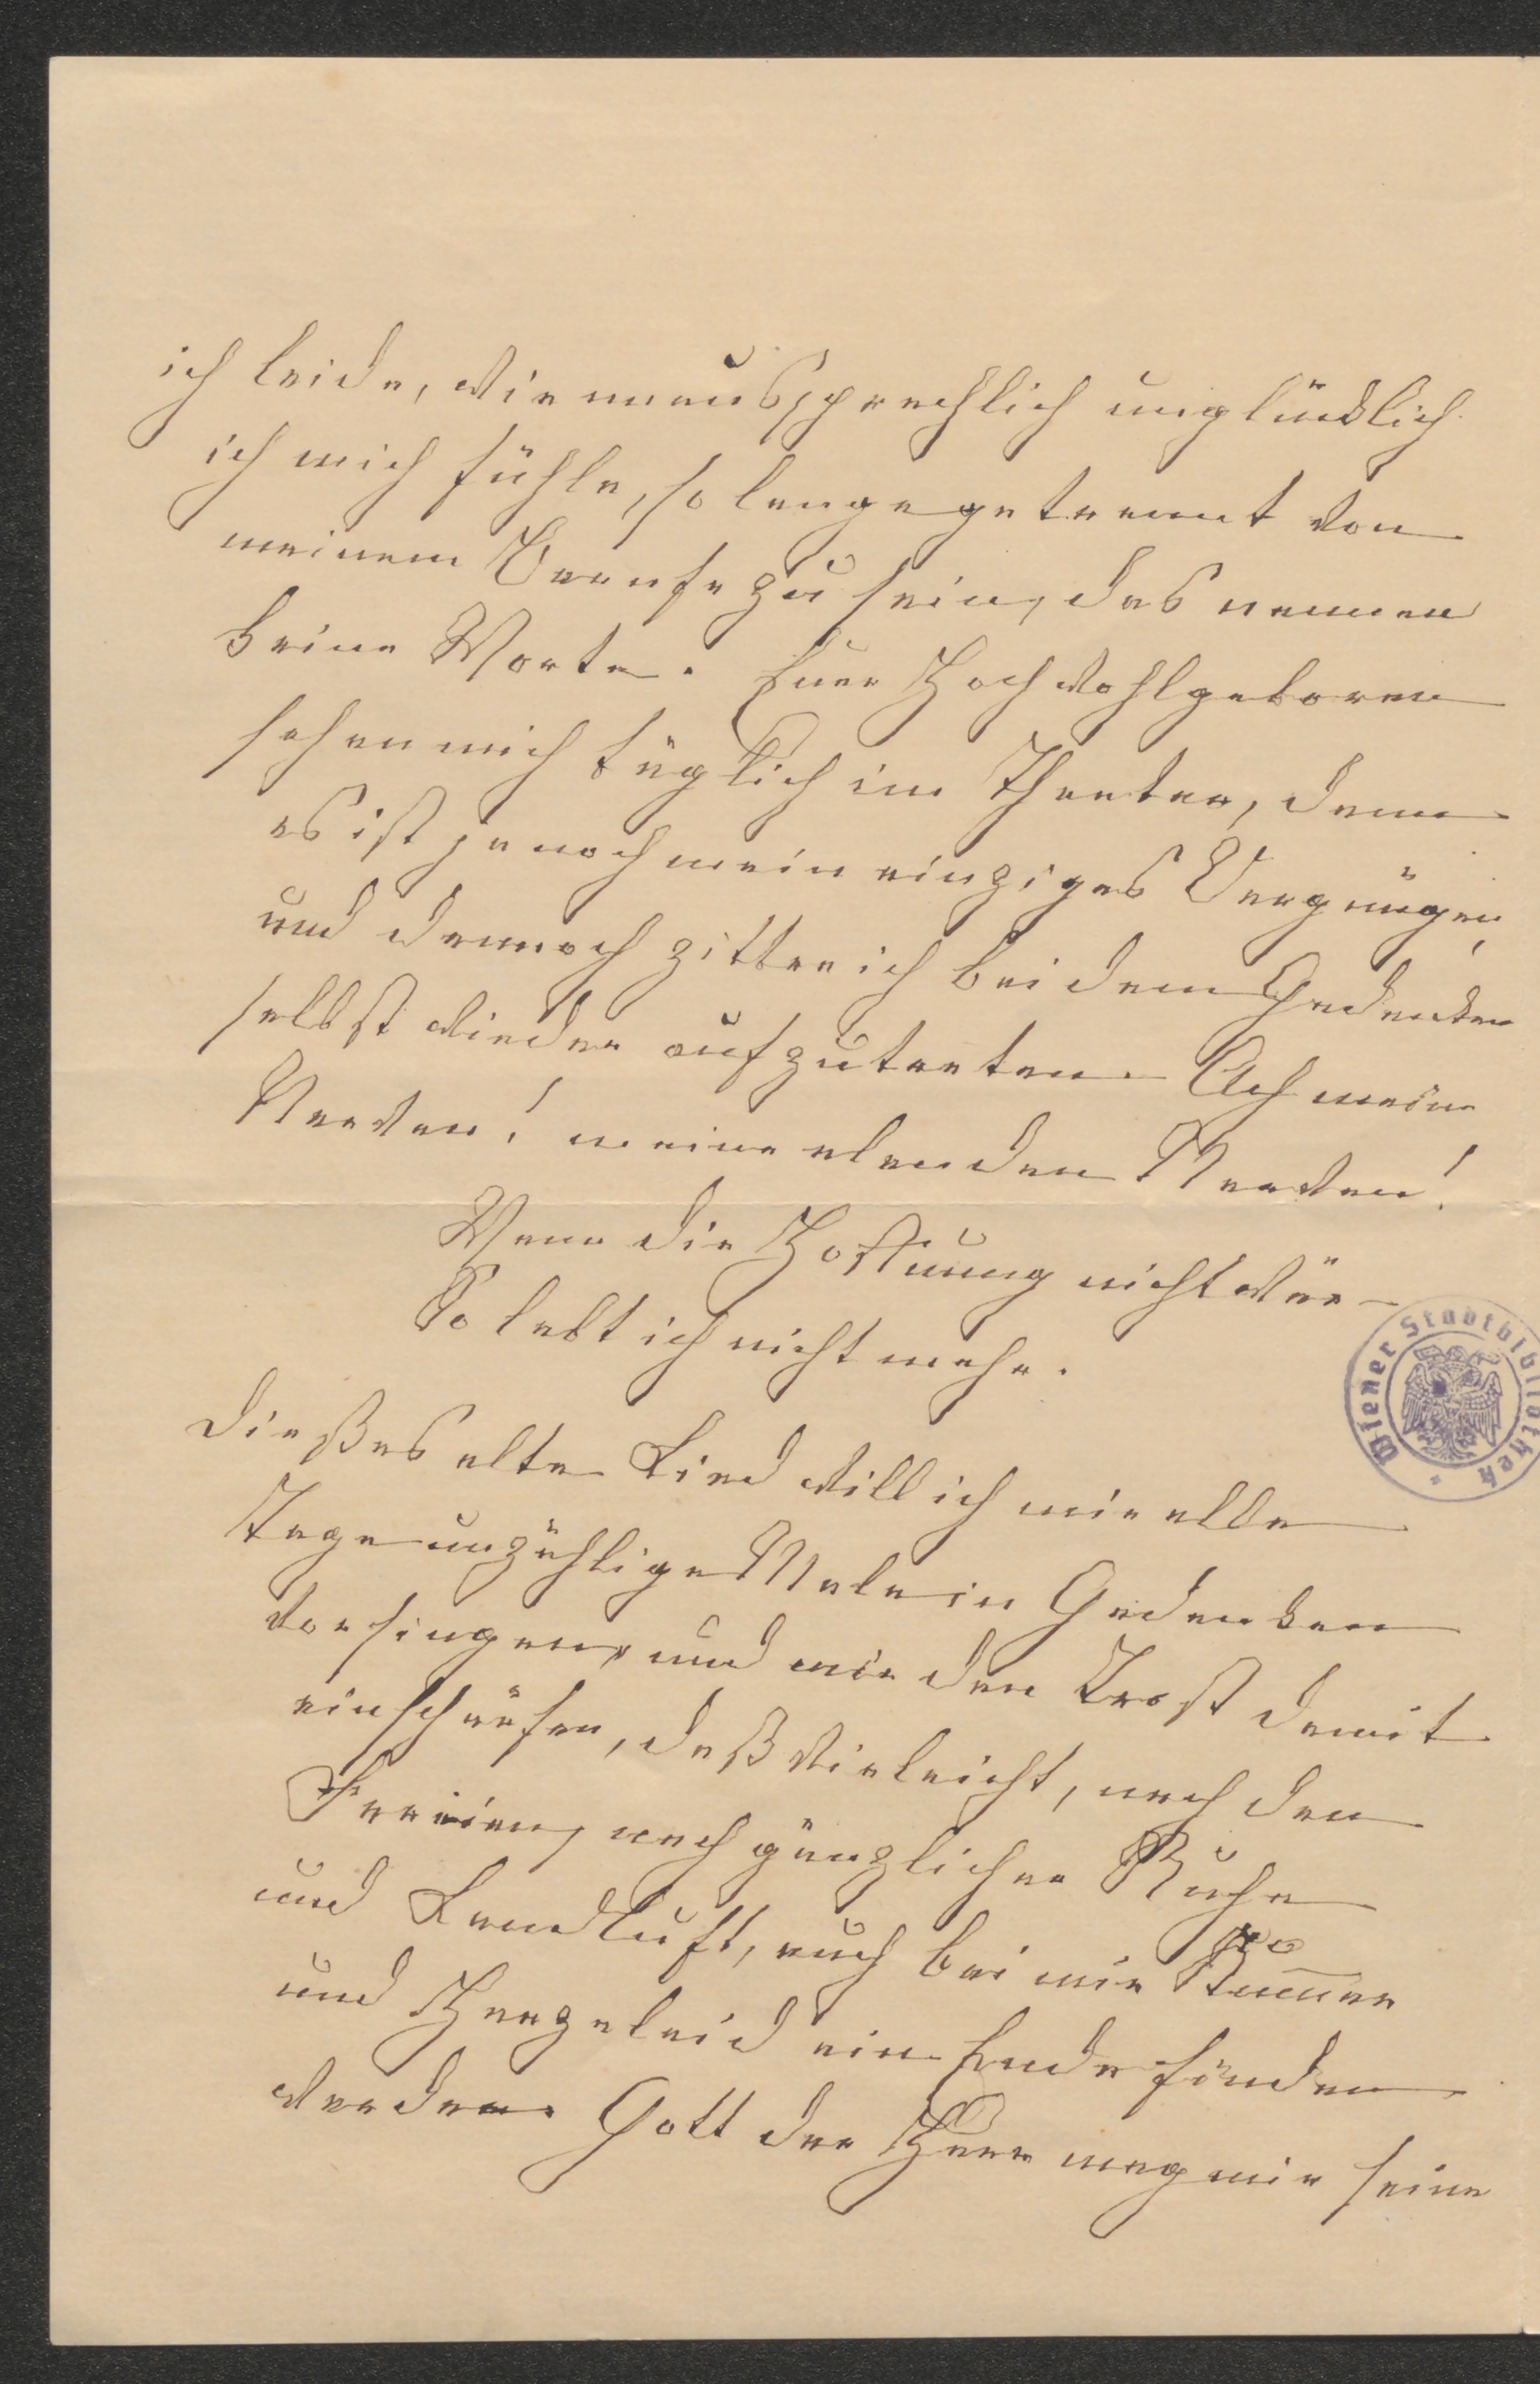 ich leide, wie unaussprechlich unglücklich
ich mich fühle, so lange getrennt von
meinem Berufe zu sein, das nennen
keine Worte. Euer Hochwohlgeboren
sehen mich täglich im Theater, denn
es ist ja noch mein einziges Vergnügen,
und dennoch zittre ich bei dem Gedanken
selbst wieder aufzutreten. Ach meine
Nerven! meine elenden Nerven!
Wenn die Hoffnung nicht wär –
So lebt ich nicht mehr.
Dießes alte Lied will ich mir alle
Tage unzählige Male in Gedanken
vorsingen, und mir den Trost damit
einschärfen, daß vieleicht, nach den
Ferien, nach gänzlicher Ruhe
und Landluft, auch bei mir Kum̅er
und Herzeleid ein Ende finden
werden. Gott der Herr mag mir seine
Wiener Stadtbibliothek *